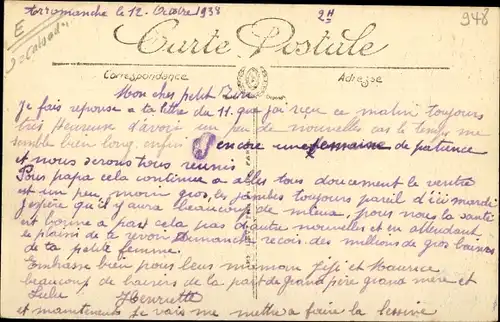 Arromanche le 12 Octobre 1938
2H
948
E
Calvados
Carte Postale
Correspondance
Adresse
Mon cher petit
Je fais reponse a ta lettre du 11 que j'ai reçue ce matin toujours
très Heureuse d'avoir un peu de nouvelles car le temps me
semble bien long enfin encore une semaine de patience
et nous serons tous reunis
Pour papa cela continue a aller tous doucement le ventre
est un peu moin gros, les jambes toujours pareil d'ici mardi
j'espère qu'il y aura beaucoup de mieux, pour nous la santé
est bonne a part cela pas d'autre nouvelles et en attendant
le plaisir de te revoir dimanche recois des millions de gros baisers
de ta petite femme.
Embrasse bien pour leurs maman Fifi et Maurice
beaucoup de baisers de la part de grand père grand mère et
Lulu Henriette
et maintenant je vais me mettre a faire la lessive